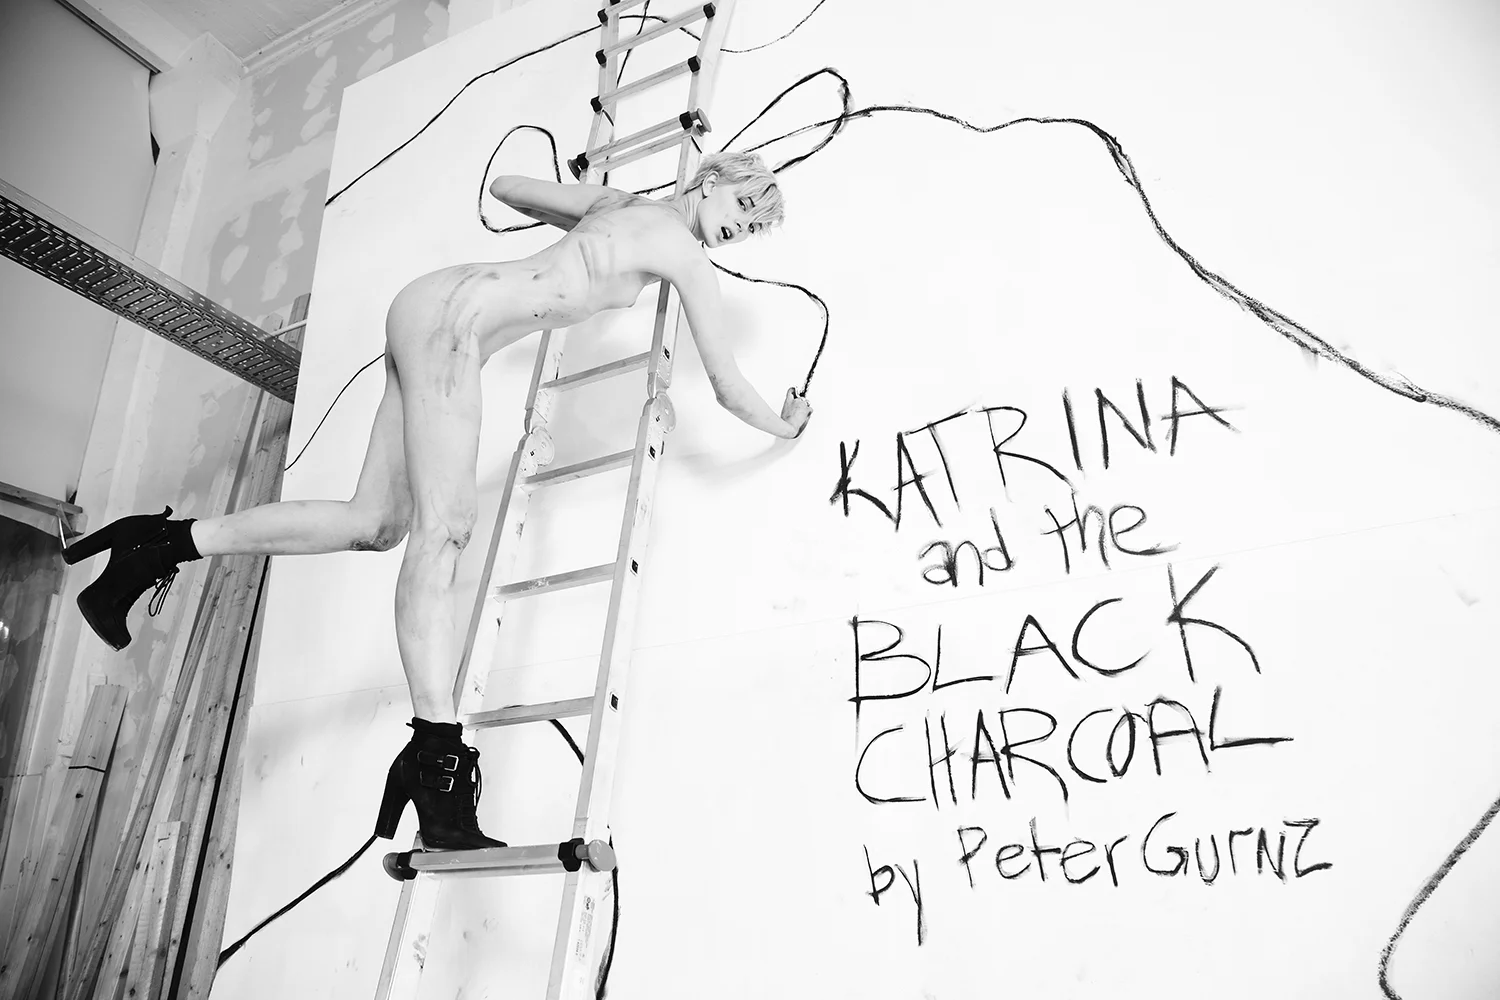 KATRINA
and the
BLACK
CHARCOAL
by Peter GurNZ